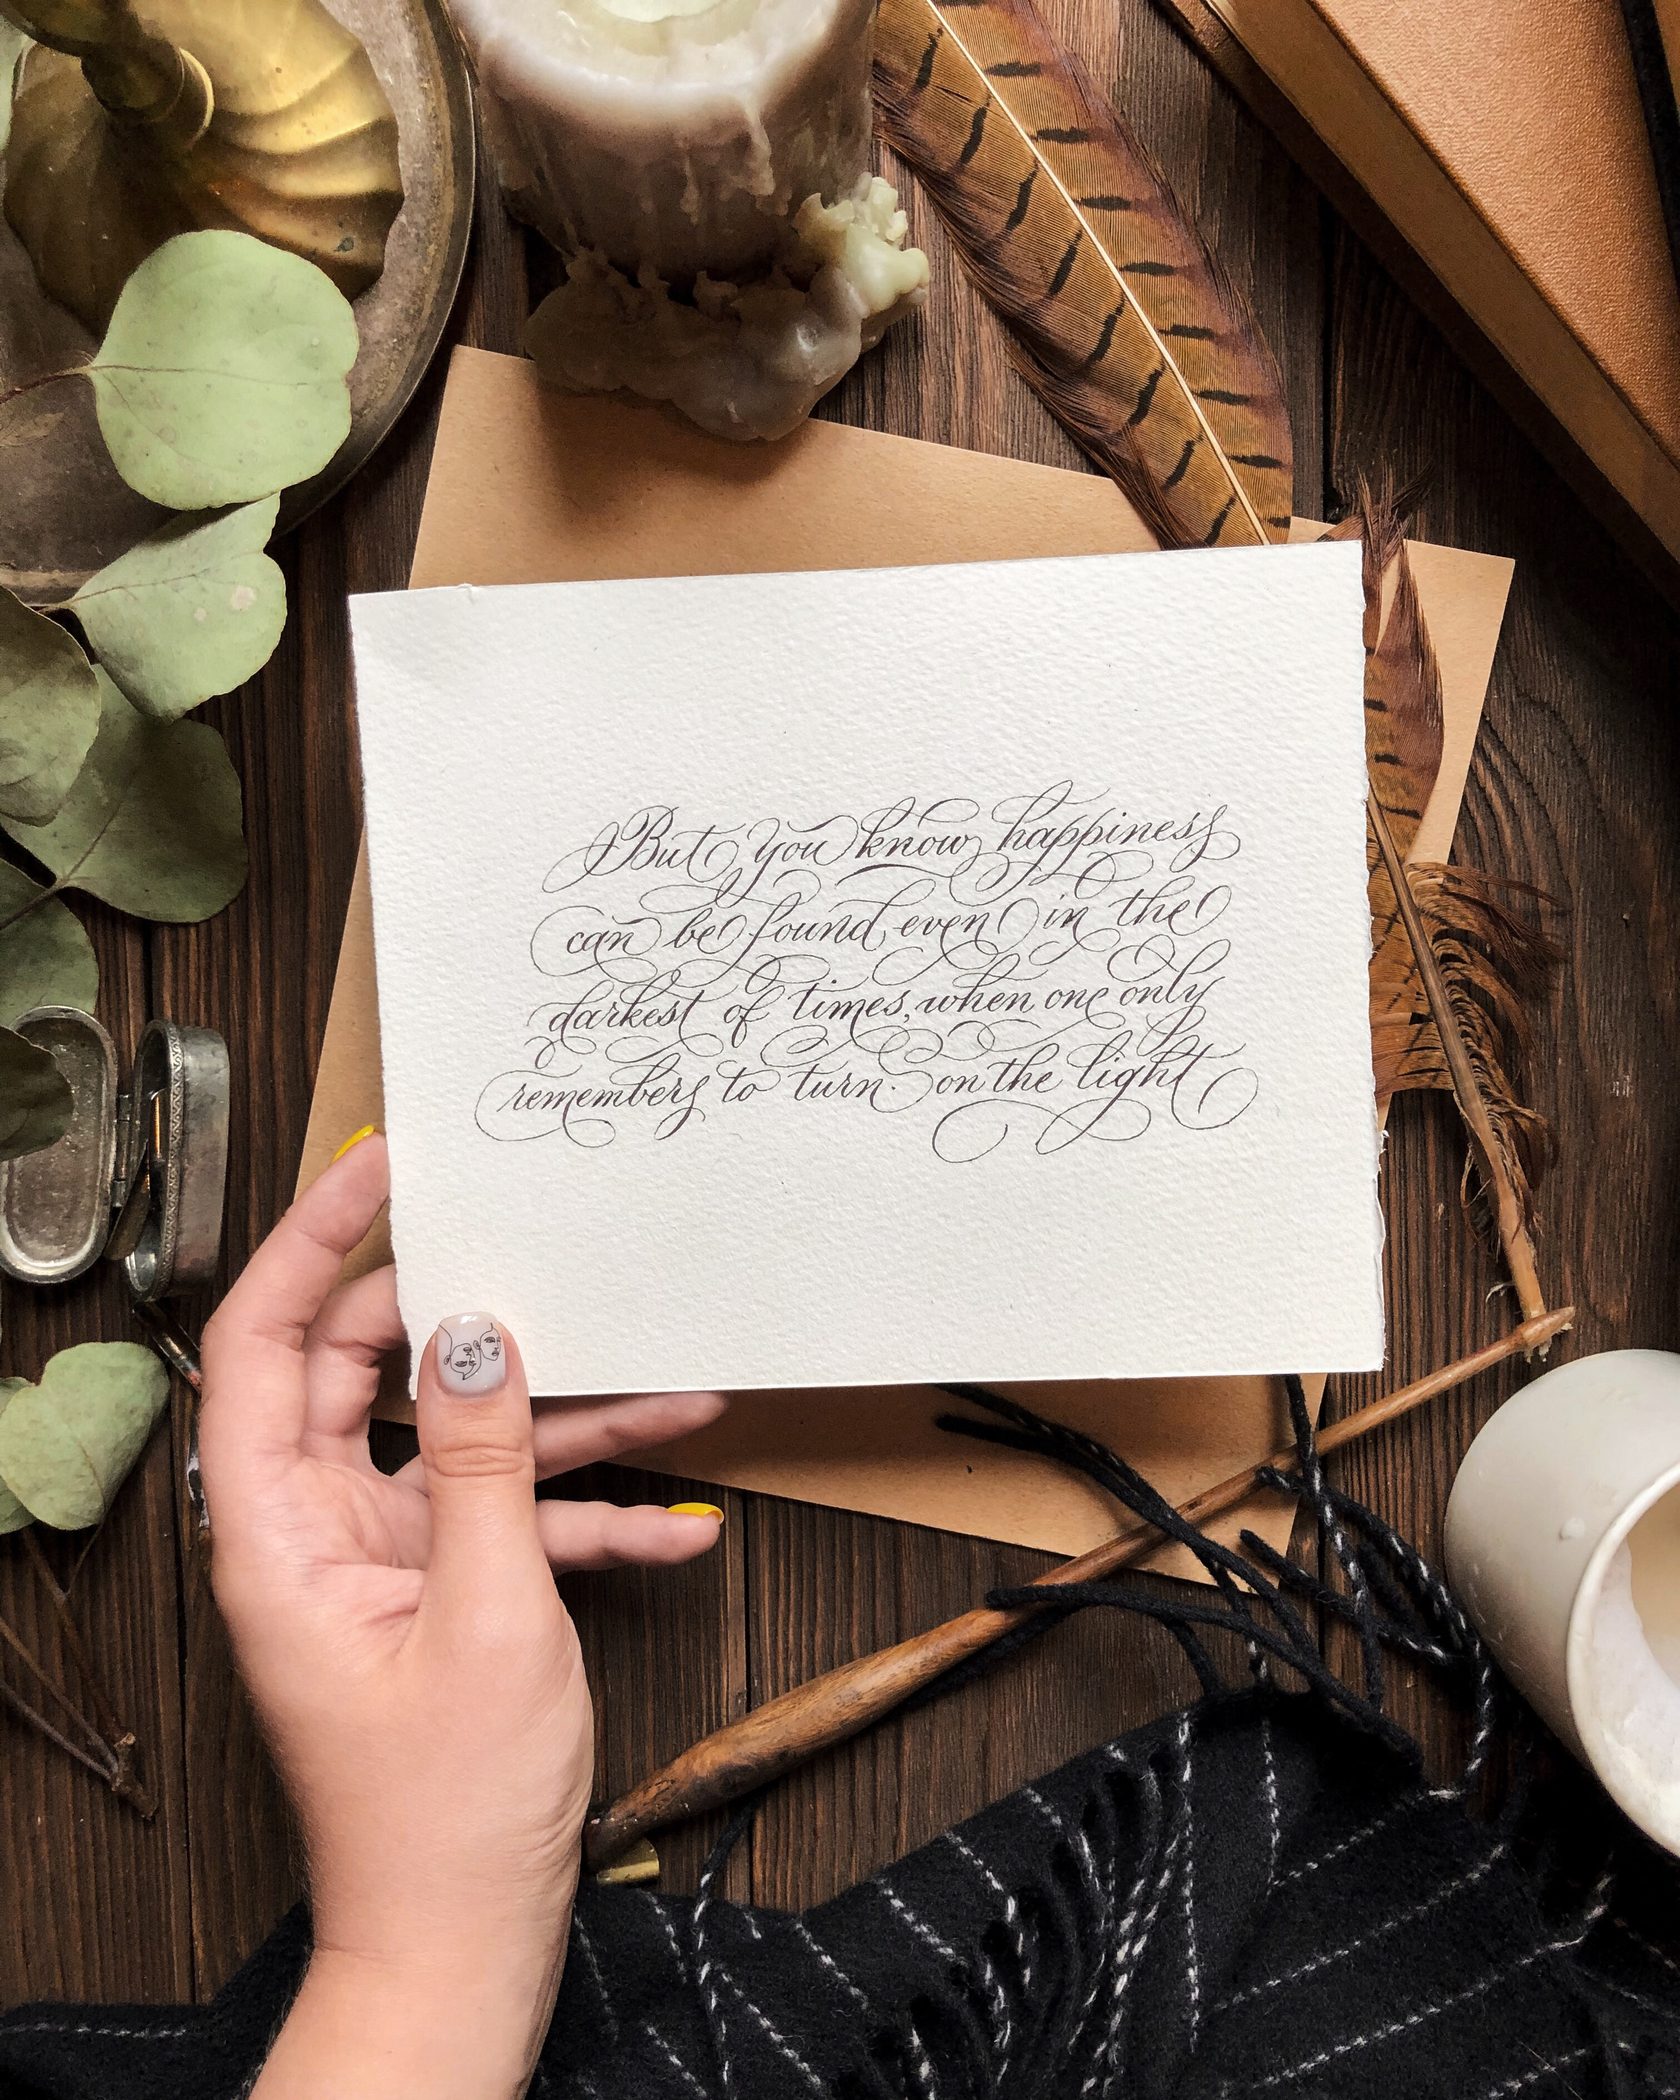 But you know happiness
can be found even in the
darkest of times, when one only
remembers to turn. on the light